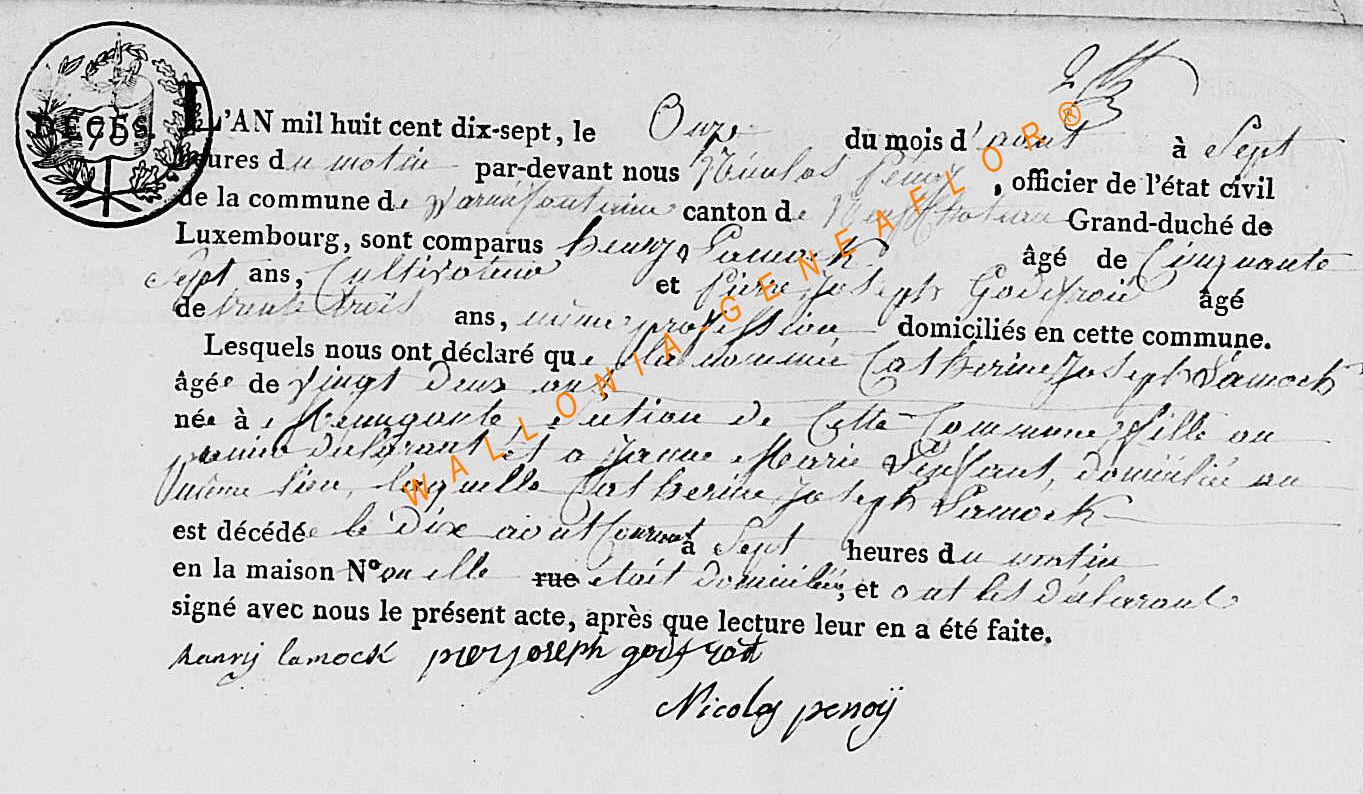 DECES.
75
L'AN mil huit cent dix-sept, le Onze du mois d'aout à Sept
heures du matin par-devant nous Nicolas Penoy, officier de l'état civil
de la commune de Warmifontaine canton de Neufchateau Grand-duché de
Luxembourg, sont comparus henry Lamock âgé de Cinquante
Sept ans, Cultivateur et Pierre Joseph Godefroid âgé
de trente trois ans, même profession domiciliés en cette commune.
Lesquels nous ont déclaré que la nommée Catherine Joseph Lamock
âgée de vingt deux ans,
née à section de Cette Commune, fille au
premier déclarant et a Jeanne Marie domiciliée au
même lieu, laquelle Catherine Joseph Lamock
est décédée le Dix aout Courant à Sept heures du matin
en la maison N° ou elle rue étoit domiciliée, et ont les déclarants
signé avec nous le présent acte, après que lecture leur en a été faite.
hanrij lamock pierjoseph godfroit
Nicolas penoÿ
WALLONIA-GENEAFLOR®